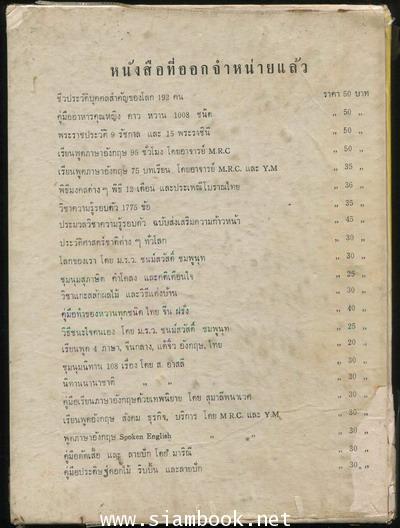 หนังสือที่ออกจำหน่ายแล้ว
ชีวประวัติบุคคลสำคัญของโลก 192 คน ราคา 50 บาท
คู่มืออาหารคุณหญิง คาว หวาน 1008 ชนิด „ 50 „
พระราชประวัติ 9 รัชกาล และ 15 พระราชินี „ 50 „
เรียนพูดภาษาอังกฤษ 95 ชั่วโมง โดยอาจารย์ M.R.C „ 50 „
เรียนพูดภาษาอังกฤษ 75 บทเรียน โดยอาจารย์ M.R.C. และ Y.M „ 35 „
พิธีมงคลต่าง ๆ พิธี 12 เดือน และประเพณีโบราณไทย „ 36 „
วิชาความรู้รอบตัว 1775 ข้อ „ 35 „
ประมวลวิชาความรู้รอบตัว ฉบับส่งเสริมความก้าวหน้า „ 45 „
ประวัติศาสตร์ชาติต่าง ๆ ทั่วโลก „ 30 „
โลกของเรา โดย ม.ร.ว. ชนม์สวัสดิ์ ชมพูนุท „ 30 „
ชุมนุมสุภาษิต คำโคลง และคติเตือนใจ „ 25 „
วิชาแกะสลักผลไม้ และวิธีแต่งบ้าน „ 30 „
คู่มือทำของหวานทุกชนิด ไทย จีน ฝรั่ง „ 40 „
วิธีชนะใจคนเอง โดย ม.ร.ว. ชนม์สวัสดิ์ ชมพูนุท „ 25 „
เรียนพูด 4 ภาษา, จีนกลาง, แต้จิ๋ว อังกฤษ, ไทย „ 20 „
ชุมนุมนิทาน 108 เรื่อง โดย ส. อาสลี 30 „
นิทานนานาชาติ „ „ 30 „
คู่มือเรียนภาษาอังกฤษด้วยเทพนิยาย โดย สุมาลีพนาเวศ 30 „
เรียนพูดอังกฤษ สังคม ธุรกิจ, บริการ โดย M.R.C. และ Y.M „ 30 „
พูดภาษาอังกฤษ Spoken English „ „ 35 „
คู่มือตัดเสื้อ และ ลายปัก โดย มารินี „ 30 „
คู่มือประดิษฐ์ดอกไม้ ริบบิ้น และลายปัก „ 30 „
www.siambook.net